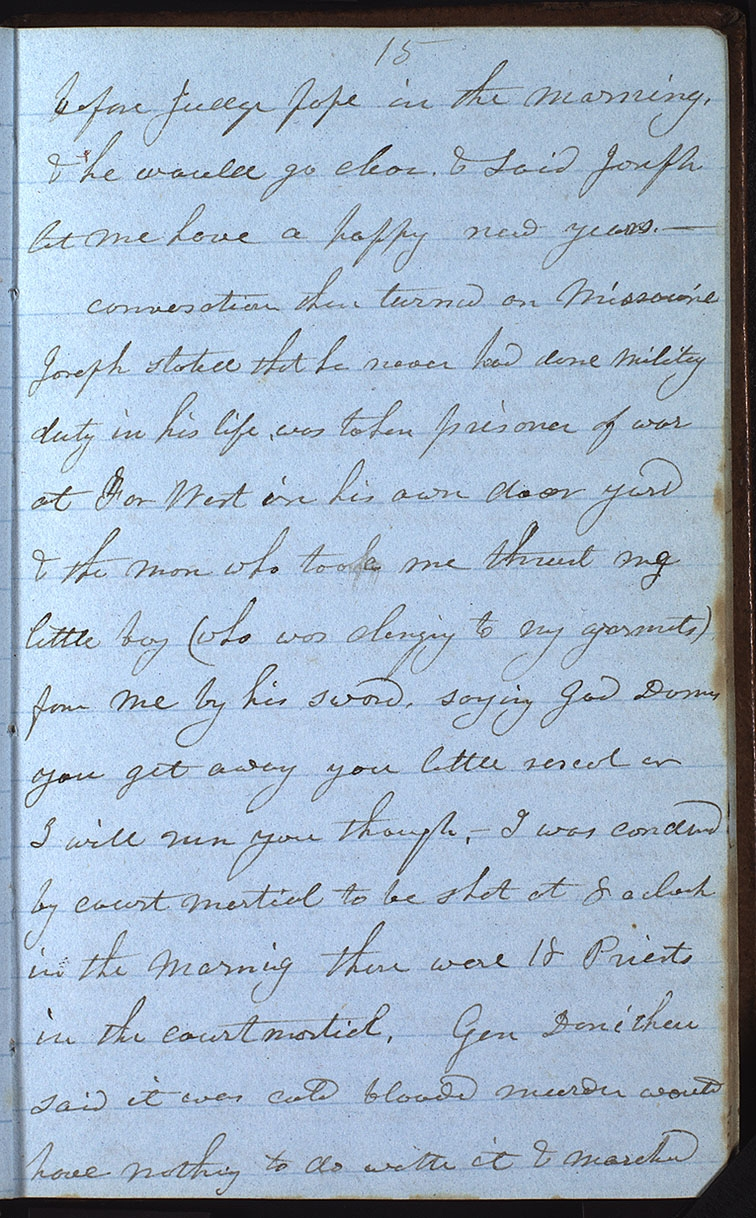 15
before Judge Pope in the morning.
& he would go clear. & said Joseph
let me have a happy new years.—
conversation then turned on Missourie
Joseph stated that he never had done mility
duty in his life, was taken prisoner of war
at Far West in his own door yard
& the man who took me thrust my
little boy (who was clinging to my garments)
from me by his sword. saying God Damn
you get away you little rascal or
I will run you though.— I was condemd
by court martial to be shot at 8 oclock
in the morning there were 18 Priests
in the court martial. Gen Donithen
said it was cold blooded murder would
have nothing to do with it & marched